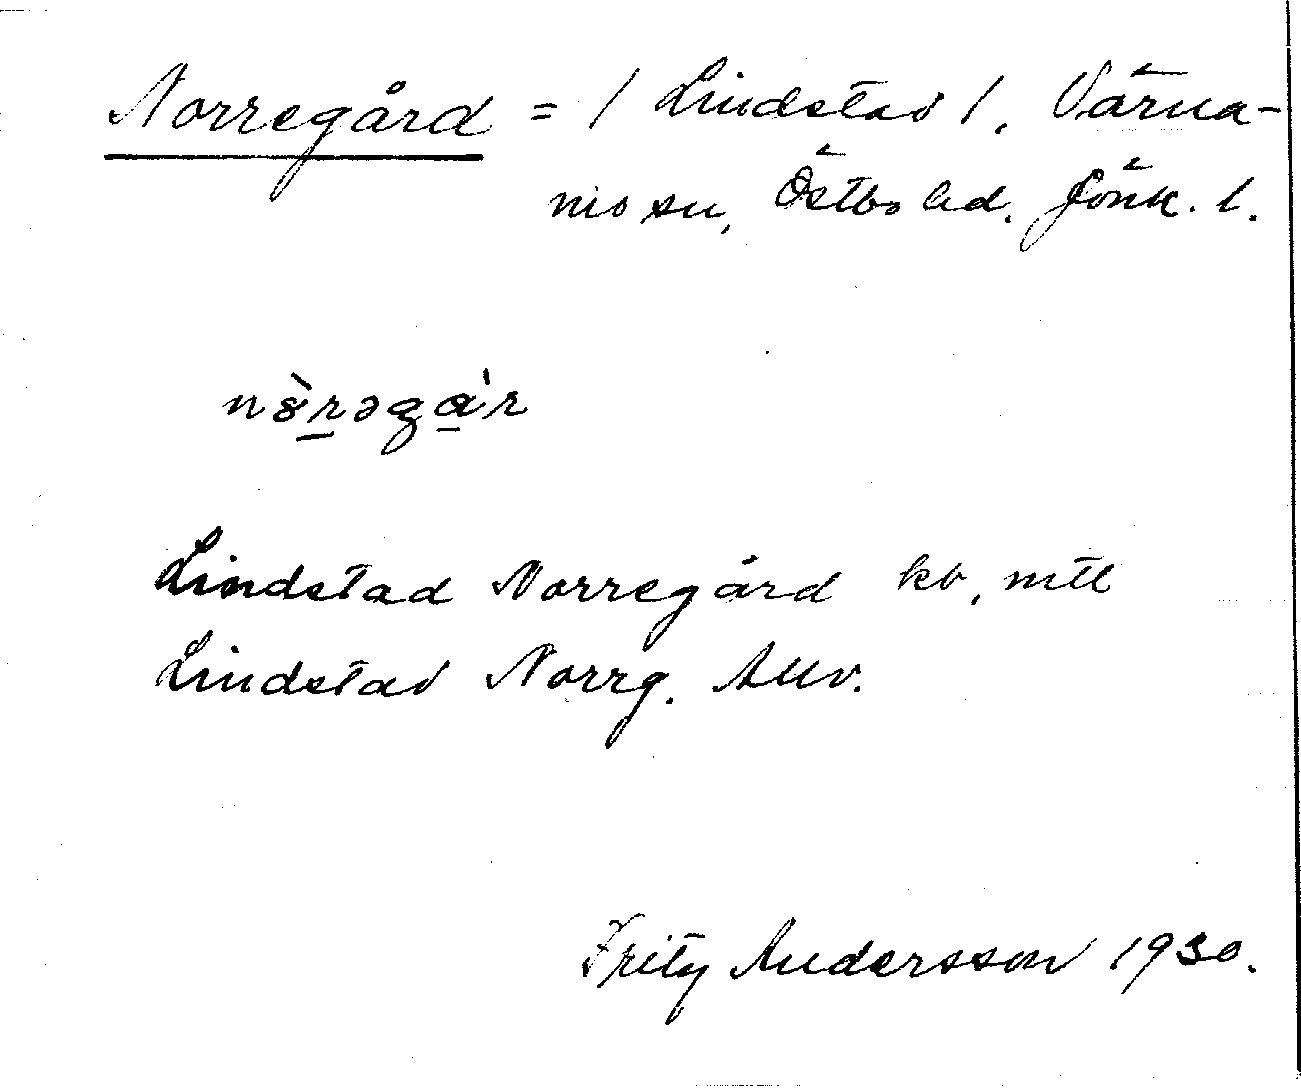 Norregård = / Lindstad /. Värna-
mo sn, Östbo hd. Jönk. l.
Lindstad Norregård kb, mtl
Lindstad Norrg. Allv.
Fritz Andersson 1930.